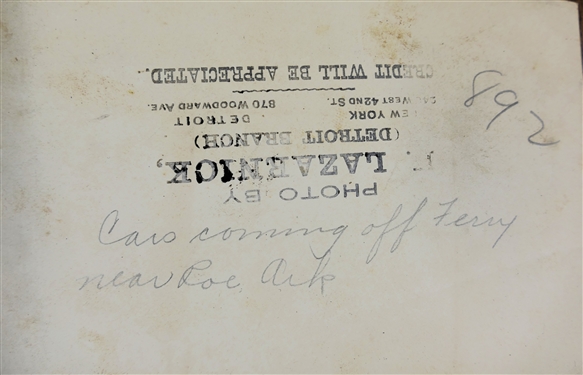 892
Cars coming off Ferry
near Roe, Ark
PHOTO BY
N. LAZARNICK,
(DETROIT BRANCH)
NEW YORK DETROIT
WEST 42ND ST. 870 WOODWARD AVE.
CREDIT WILL BE APPRECIATED.